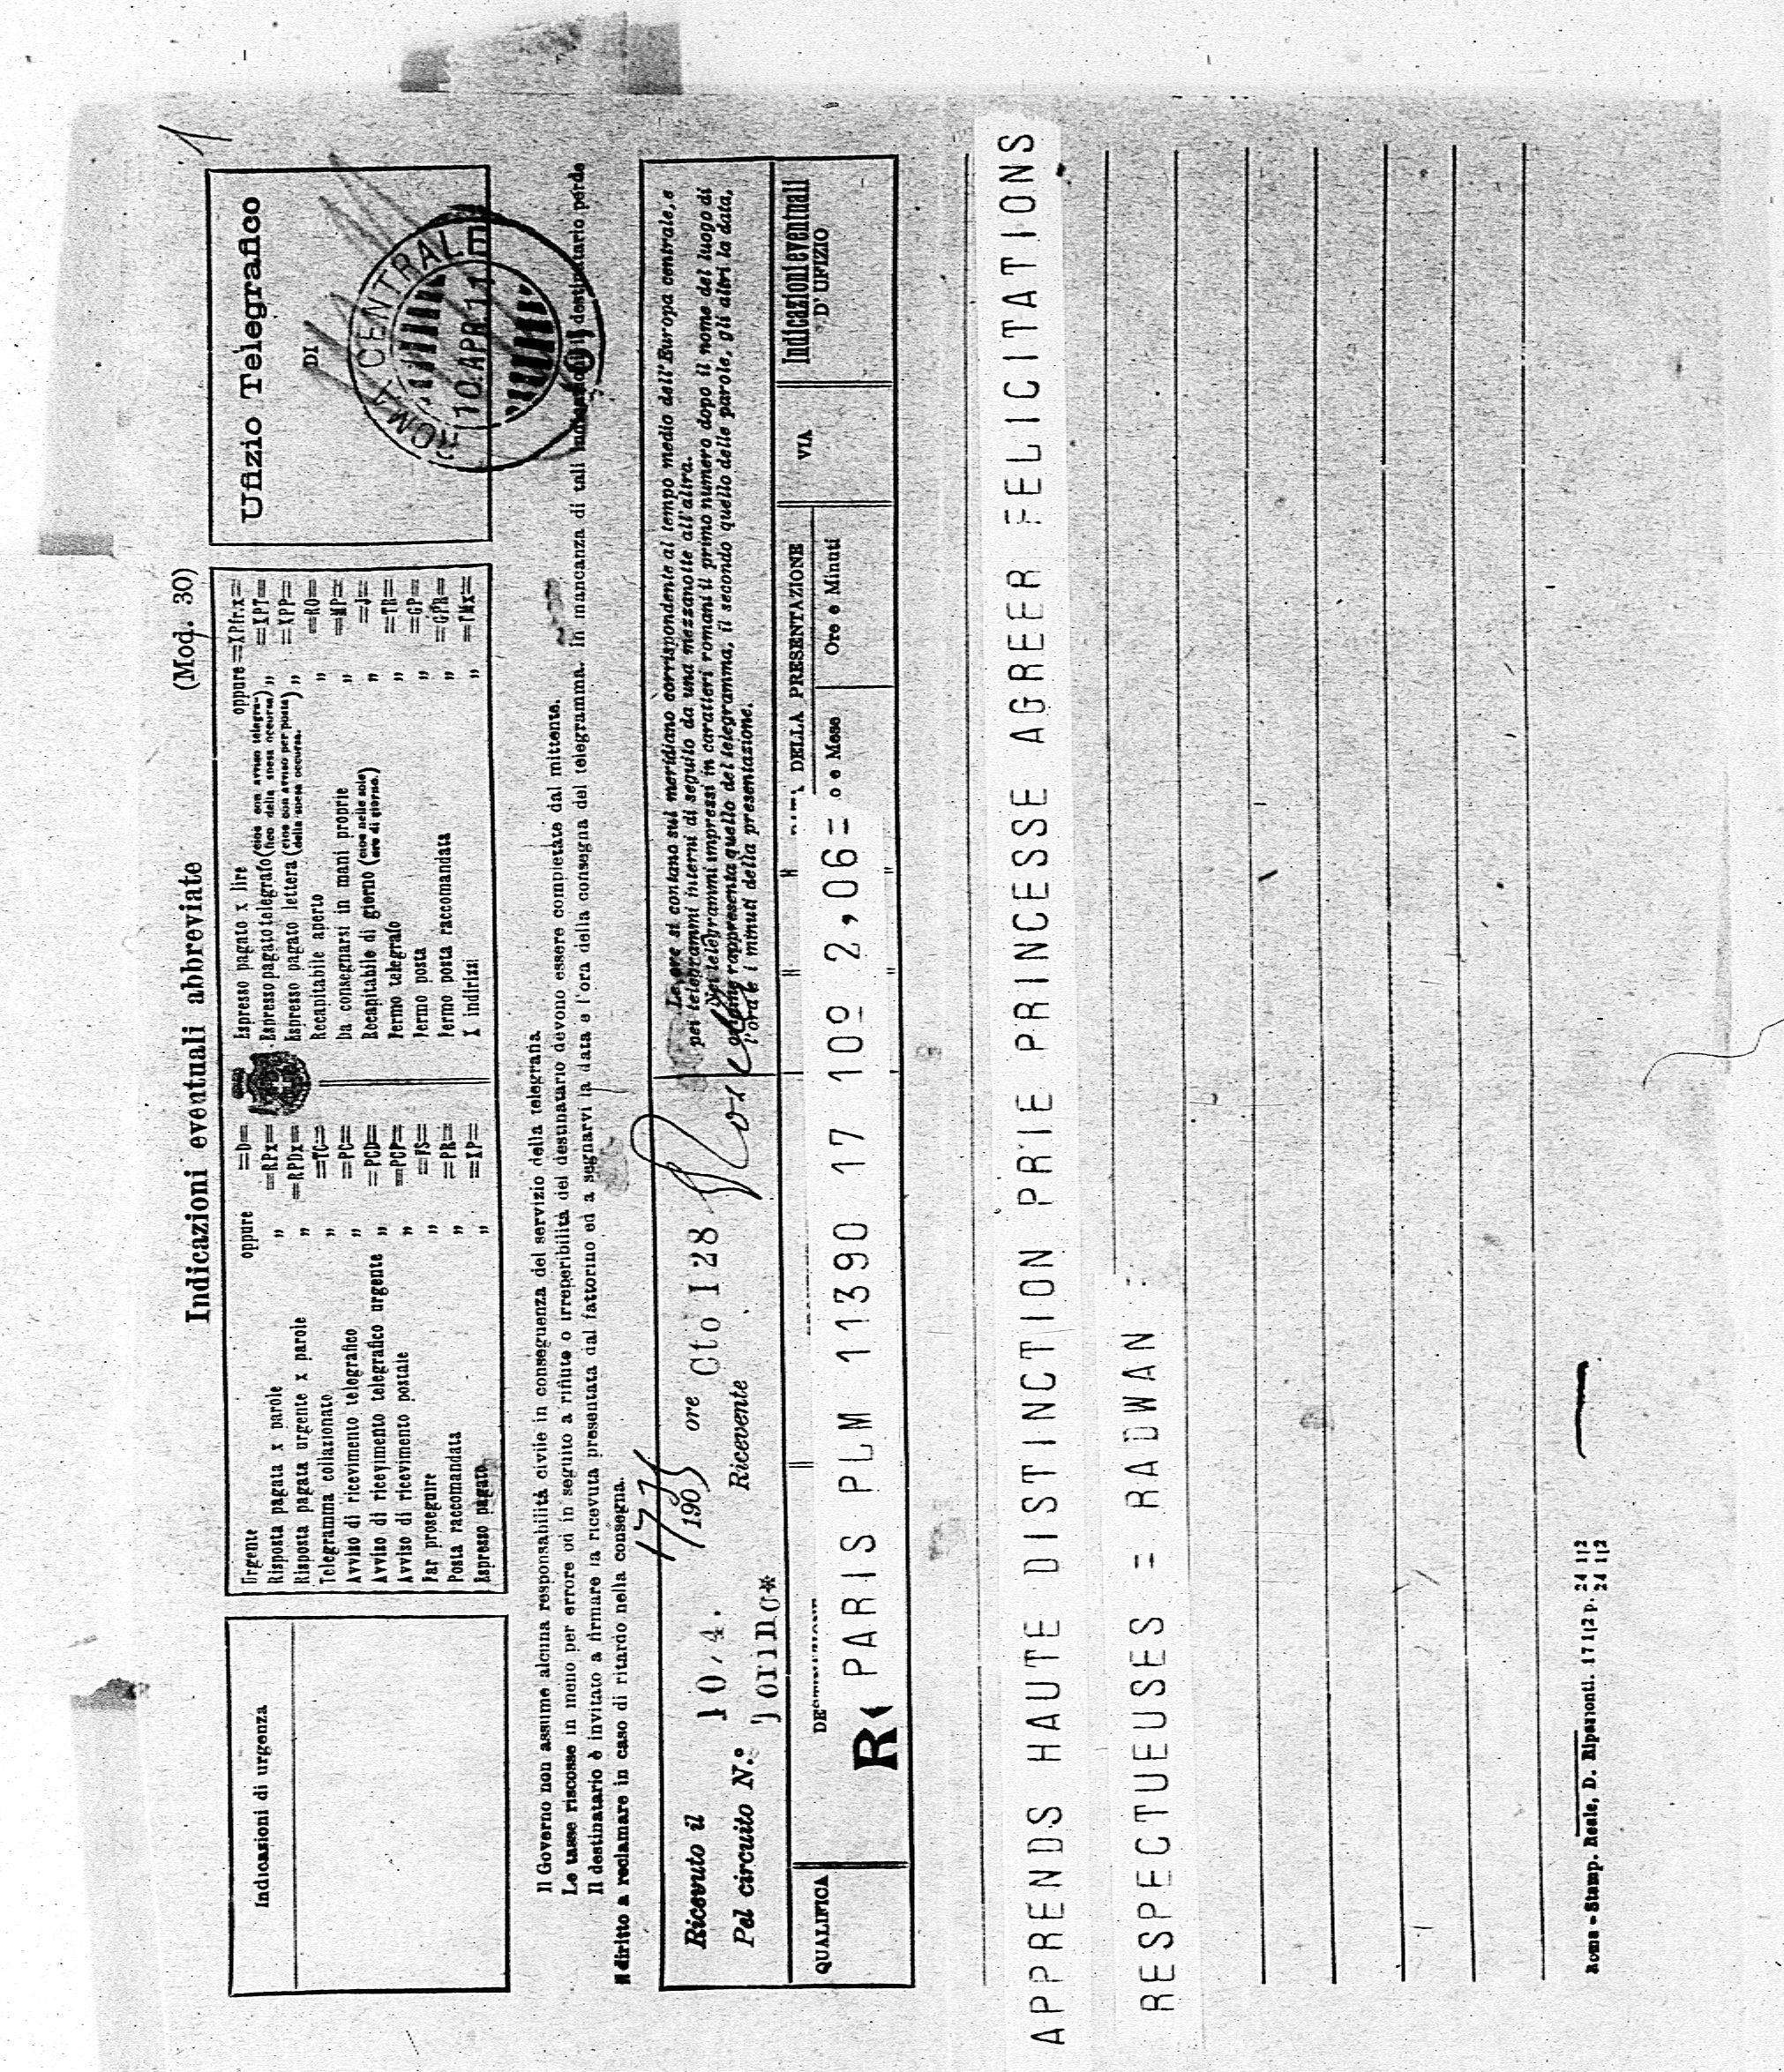 1
Indicazioni eventuali abbreviate (Mod. 30)
Indicazioni di urgenza
Urgente oppure =D=
Risposta pagata x parole „ =RPx=
Risposta pagata urgente x parole „ =RPDx=
Telegramma collazionato „ =TC=
Avviso di ricevimento telegrafico „ =PC=
Avviso di ricevimento telegrafico urgente „ =PCD=
Avviso di ricevimento postale „ =PCP=
Far proseguire „ =FS=
Posta raccomandata „ =PR=
Espresso pagato „ =XP=
Espresso pagato x lire oppure =XPfr.x=
Espresso pagato telegrafo (cioè con avviso telegrafico della spesa occorsa) „ =XPT=
Espresso pagato lettera (cioè con avviso per posta della spesa occorsa.) „ =XPP=
Recapitabile aperto „ =RO=
Da consegnarsi in mani proprie „ =MP=
Recapitabile di giorno (cioè nelle sole ore di giorno.) „ =J=
Fermo telegrafo „ =TR=
Fermo posta „ =GP=
Fermo posta raccomandata „ =GPR=
X indirizzi „ =TMx=
Ufizio Telegrafico
DI
ROMA CENTRALE
10.APR.11
Il Governo non assume alcuna responsabilità civile in conseguenza del servizio della telegrafia.
Le tasse riscosse in meno per errore od in seguito a rifiuto o irreperibilità del destinatario devono essere completate dal mittente.
Il destinatario è invitato a firmare la ricevuta presentata dal fattorino ed a segnarvi la data e l'ora della consegna del telegramma. In mancanza di tali indicazioni il destinatario perde
il diritto a reclamare in caso di ritardo nella consegna.
Ricevuto il 10/4. 190 ore 1735 Cto 128
Pel circuito N.° Torino* Ricevente
Le ore si contano sul meridiano corrispondente al tempo medio dell'Europa centrale, e
pei telegrammi interni di seguito da una mezzanotte all'altra.
Nei telegrammi impressi in caratteri romani il primo numero dopo il nome del luogo di
origine rappresenta quello del telegramma, il secondo quello delle parole, gli altri la data,
l'ora e i minuti della presentazione.
QUALIFICA
DELLA PRESENTAZIONE
o e Mese Ore e Minuti
VIA
Indicazioni eventuali
D'UFIZIO
R PARIS PLM 11390 17 10º 2,06 =
APPRENDS HAUTE DISTINCTION PRIE PRINCESSE AGREER FELICITATIONS
RESPECTUEUSES = RADWAN :
Roma - Stamp. Reale, D. Ripamonti. 17 1|2 p. 24 1|2
24 1|2